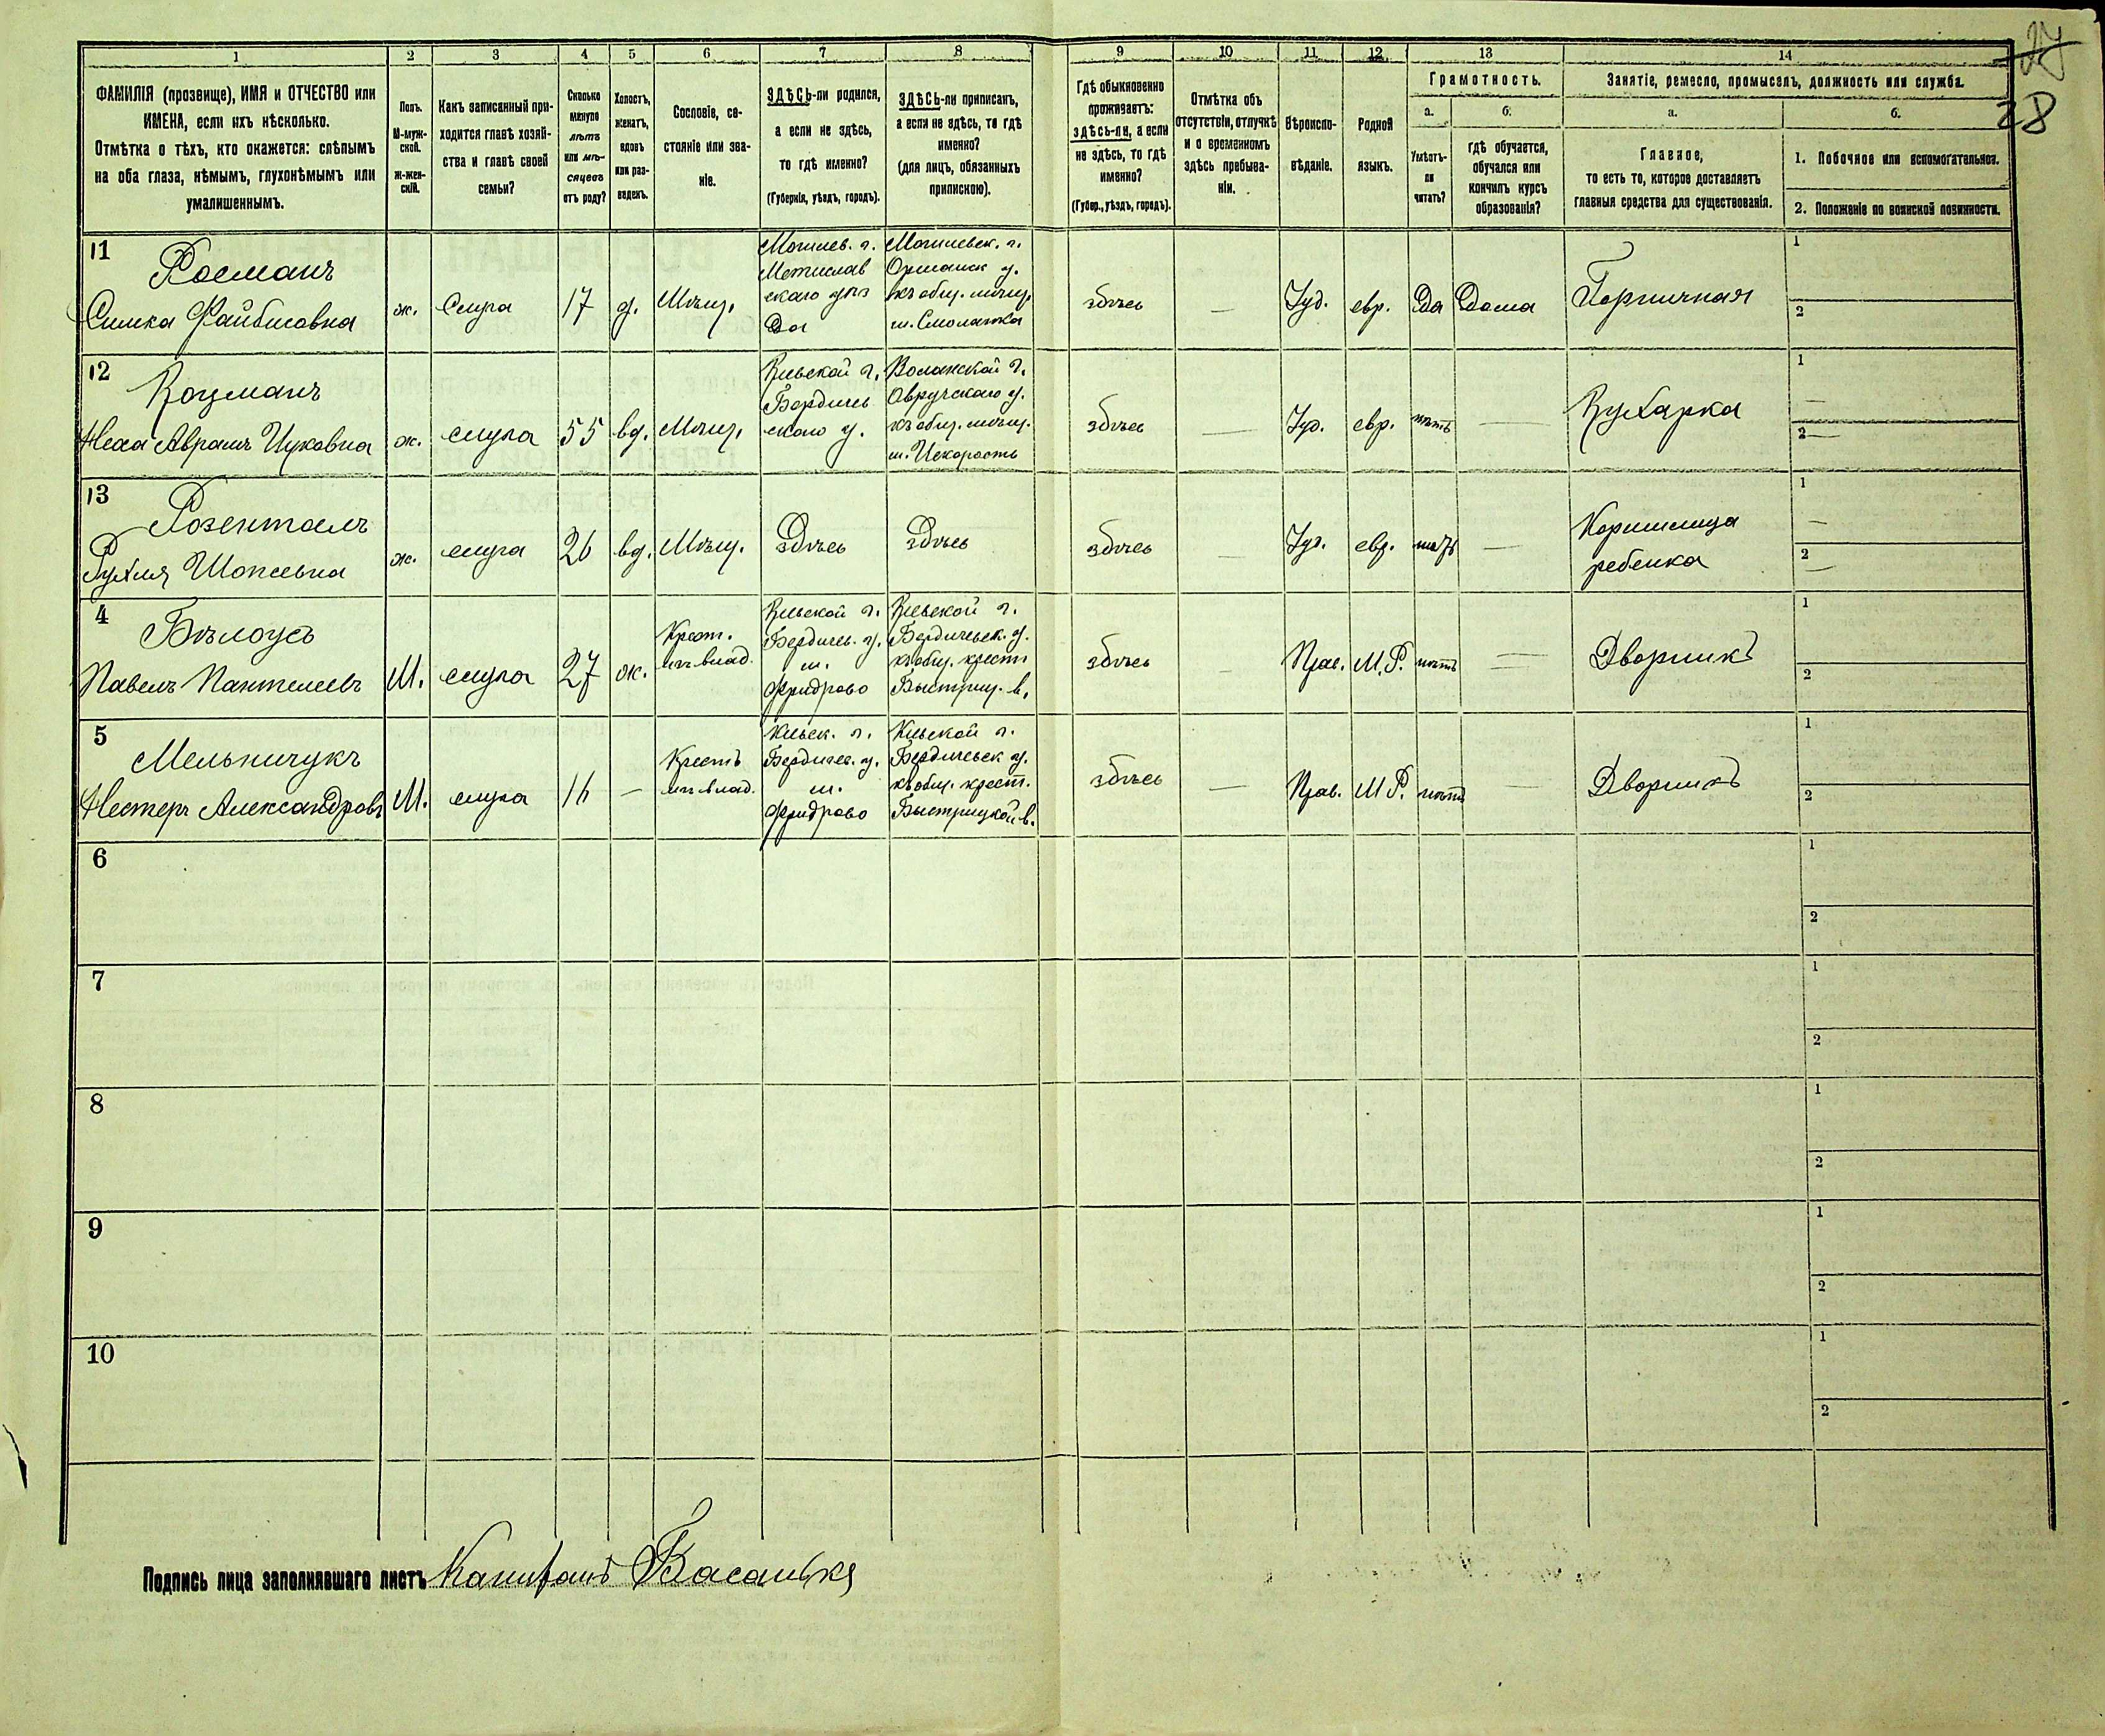 27
28
1
2
3
4
5
6
7
8
9
10
11
12
13
14
ФАМИЛІЯ (прозвище), ИМЯ и ОТЧЕСТВО или
ИМЕНА, если ихъ нѣсколько.
Отмѣтка о тѣхъ, кто окажется: слѣпымъ
на оба глаза, нѣмымъ, глухонѣмымъ или
умалишеннымъ.
Полъ.
М-муж-
ской.
Ж-жен-
скій.
Какъ записанный при-
ходится главѣ хозяй-
ства и главѣ своей
семьи?
Сколько
минуло
лѣтъ
или мѣ-
сяцевъ
отъ роду?
Холостъ,
женатъ,
вдовъ
или раз-
веденъ.
Сословіе, со-
стояніе или зва-
ніе.
ЗДѢСЬ-ли родился,
а если не здѣсь,
то гдѣ именно?
(Губернія, уѣздъ, городъ).
ЗДѢСЬ-ли приписанъ,
а если не здѣсь, то гдѣ
именно?
(для лицъ, обязанныхъ
припискою).
Гдѣ обыкновенно
проживаетъ:
здѣсь-ли, а если
не здѣсь, то гдѣ
именно?
(Губер., уѣздъ, городъ).
Отмѣтка объ
отсутствіи, отлучкѣ
и о временномъ
здѣсь пребыва-
ніи.
Вѣроиспо-
вѣданіе.
Родной
языкъ.
Грамотность.
а.
Умѣетъ-
ли
читать?
б.
гдѣ обучается,
обучался или
кончилъ курсъ
образованія?
Занятіе, ремесло, промыселъ, должность или служба.
а.
Главное,
то есть то, которое доставляетъ
главныя средства для существованія.
б.
1. Побочное или вспомогательное.
2. Положеніе по воинской повинности.
11
Росманъ
Симка Файбисовна
ж.
Слуга
17
д.
Мѣщ.
Могилев. г.
Мстислав
скаго уѣз
да
Могилевск. г.
Оршанск у.
къ общ. мѣщ.
здѣсь
—
Іуд.
евр.
Да
Дома
Горничная
1
2
12
Коцманъ
ж.
слуга
55
вд.
Мѣщ.
Кіевской г.
Бердичев
скаго у.
Волынской г.
Овручскаго у.
къ общ. мѣщ.
м. Искорость
здѣсь
—
Іуд.
евр.
нѣтъ
—
Кухарка
1
—
2 —
13
Розенталъ
Рухля
ж.
слуга
26
вд.
Мѣщ.
Здѣсь
Здѣсь
здѣсь
—
Іуд.
евр.
нѣтъ
—
Кормилица
ребенка
1
—
2
—
4
Бѣлоусъ
Павелъ Пантелеевъ
М.
слуга
27
ж.
Крест.
Кіевской г.
Бердичев. у.
м.
Кіевской г.
Бердичевск. у.
къ общ. крест
Быстриц. в.
здѣсь
—
Прав.
М.Р.
нѣтъ
—
Дворникъ
1
2
5
Мельничукъ
Нестеръ Александровъ
М.
слуга
16
—
Крестъ
Кіевск. г.
Бердичев. у.
м.
Кіевской г.
Бердичевск у.
къ общ. крест.
Быстрицкой в.
здѣсь
—
Прав.
М Р.
нѣтъ
—
Дворникъ
1
2
6
1
2
7
1
2
8
1
2
9
1
2
10
1
2
Подпись лица заполнявшаго листъ Капитанъ